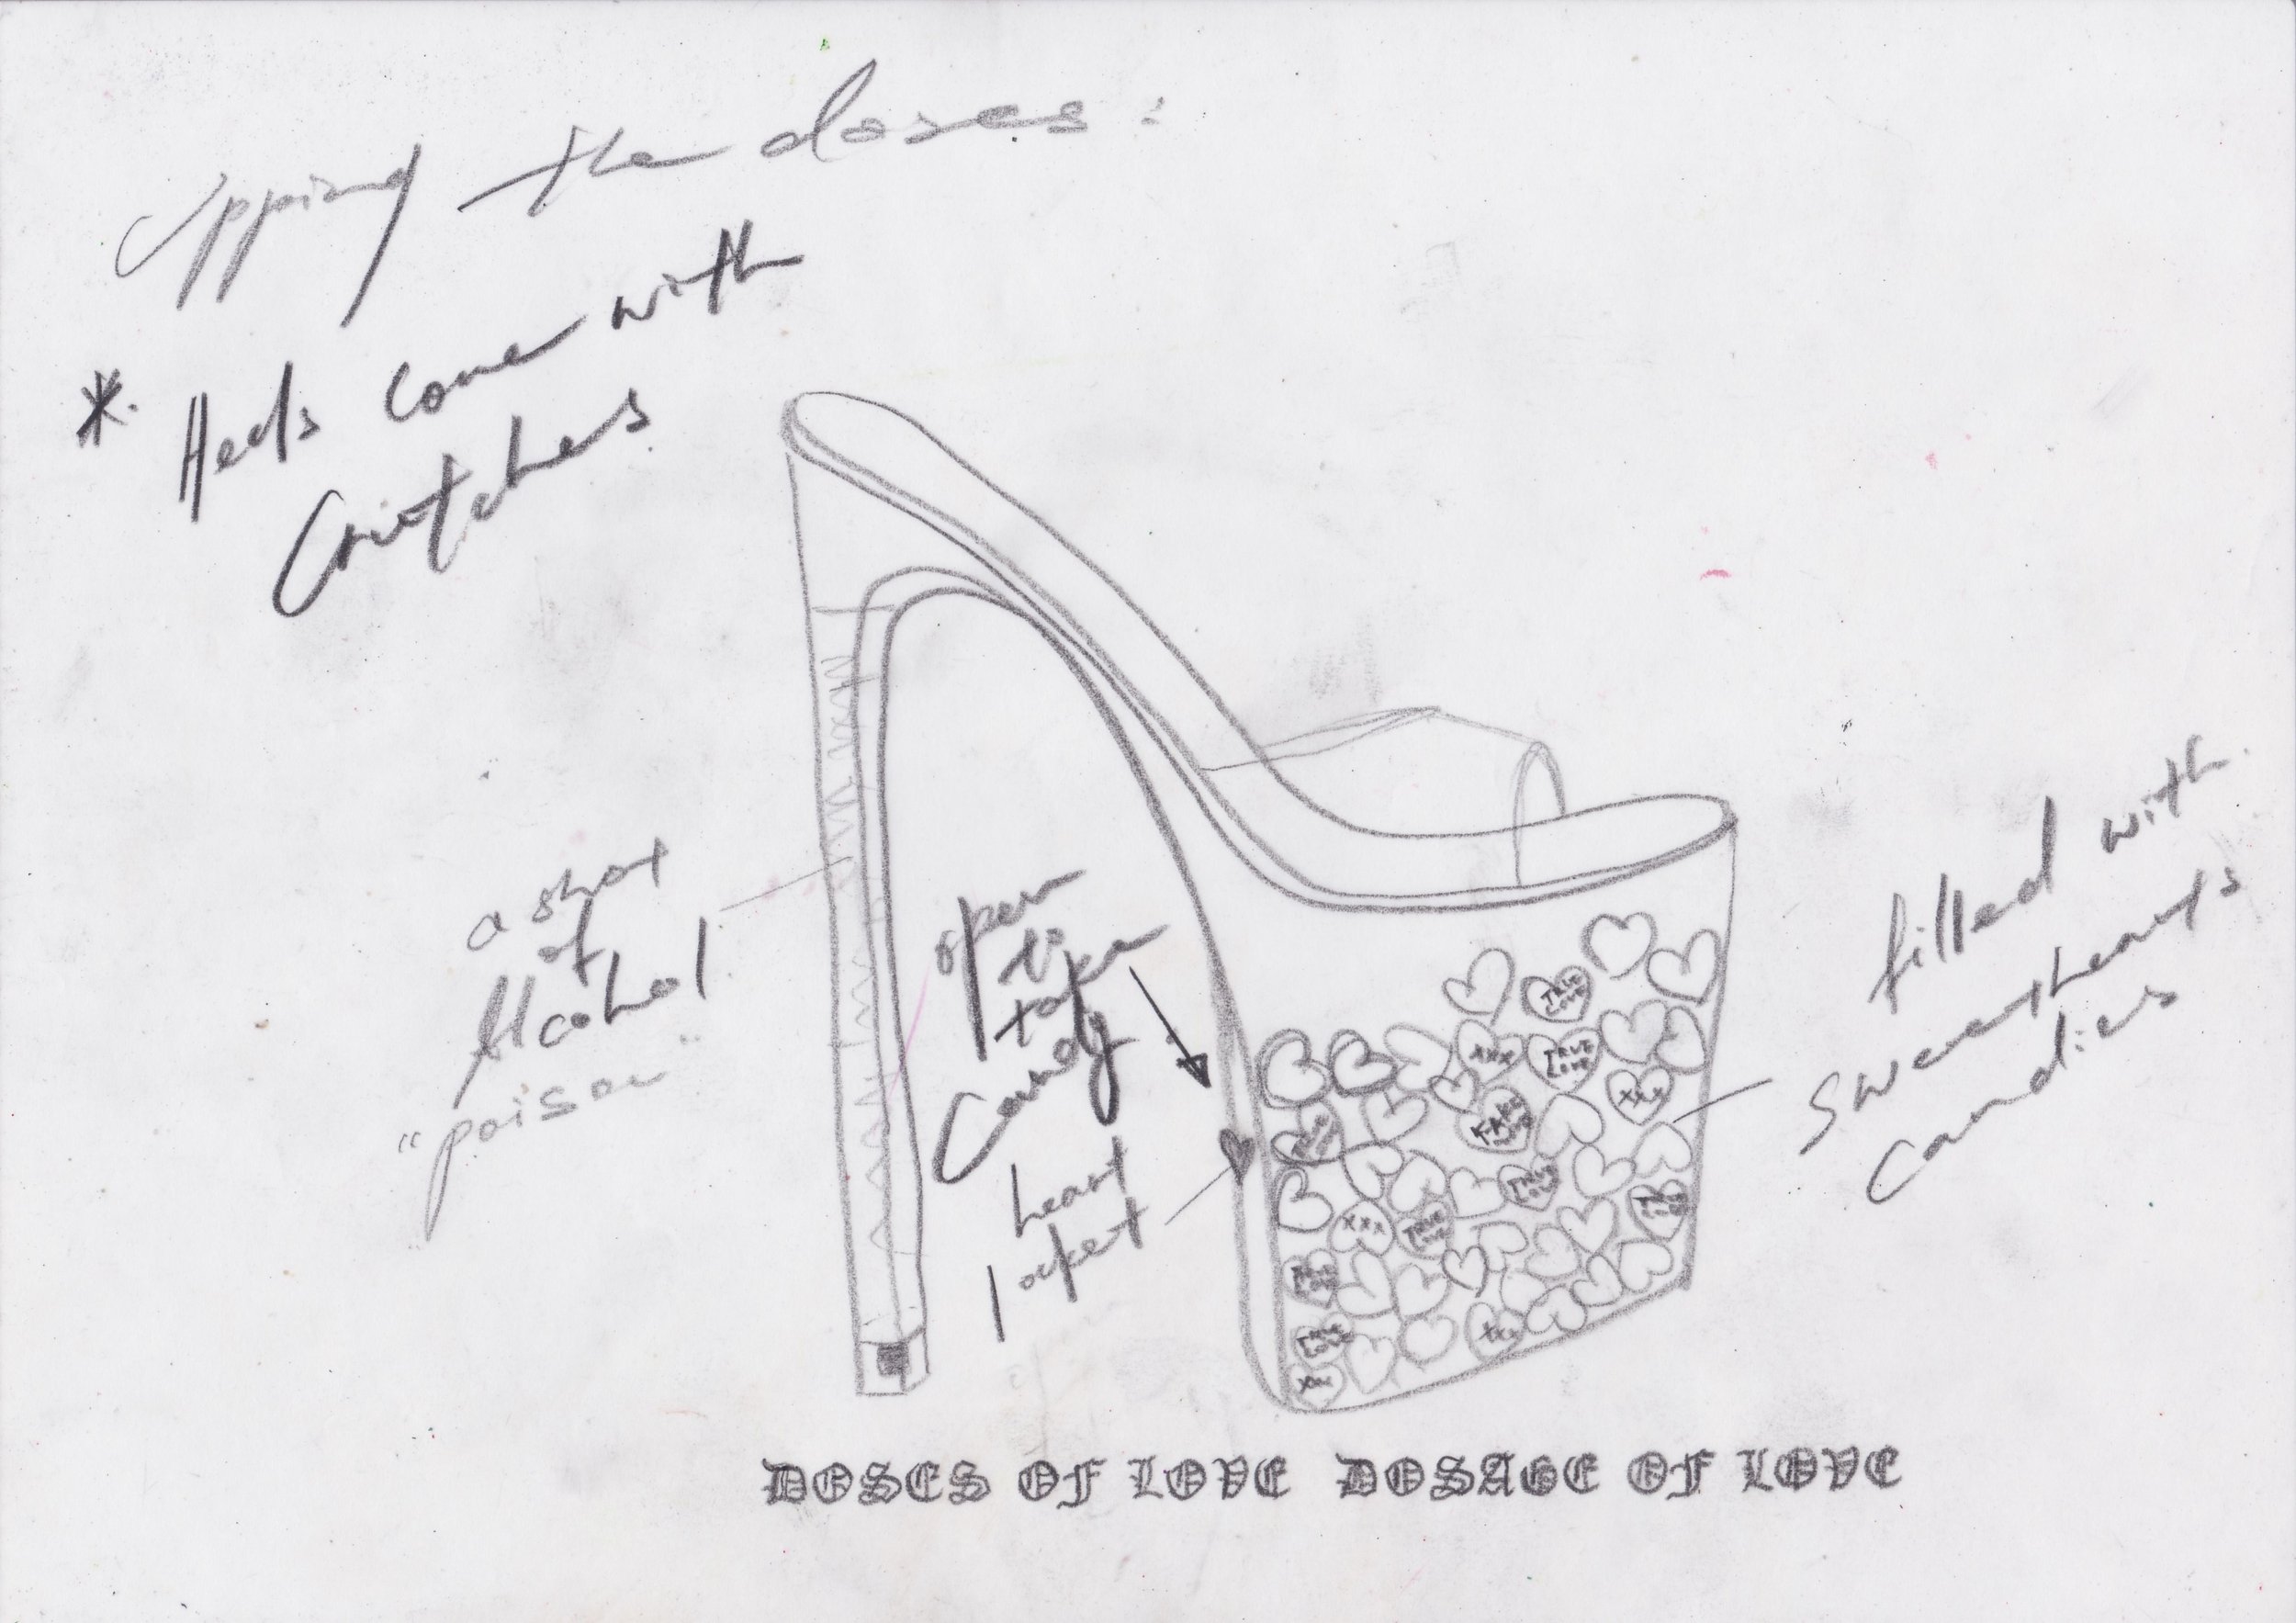 Upping the doses:
*. Heels come with
Crutches
a shot
of
Alcohol
"poison"
open
to
take
Candy
heart
locket
filled with
sweethearts
candies
TRUE
LOVE
XXX
TRUE
LOVE
XXX
FAKE
LOVE
TRUE
LOVE
TRUE
LOVE
XXX
TRUE
LOVE
TRUE
LOVE
TRUE
LOVE
XXX
XXX
DOSES OF LOVE DOSAGE OF LOVE